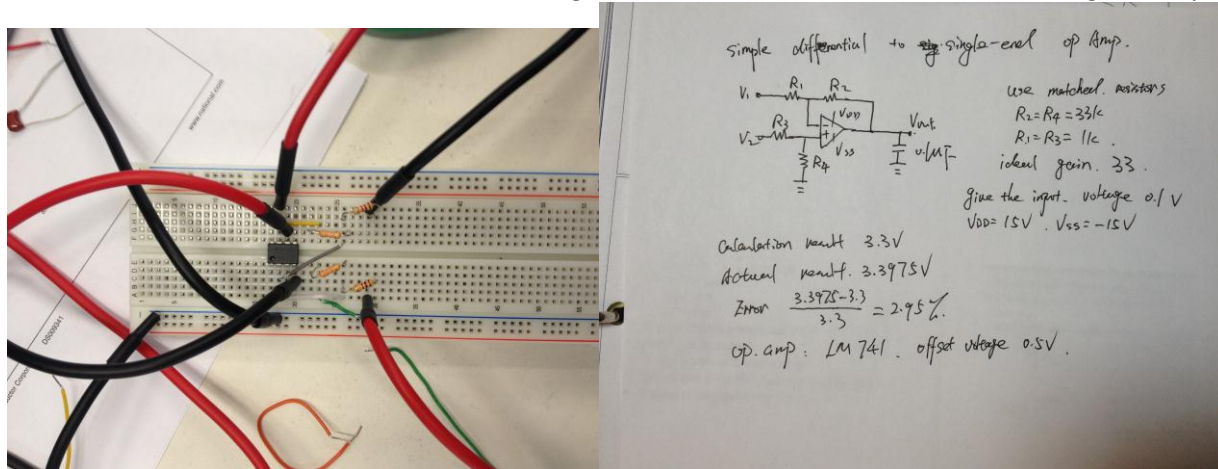 www.national.com
DS009341
simple differential to single-end op Amp.
V1 R1 R2
use matched resistors
R2=R4=33k
V2 R3 VDD Vout
R1=R3=1k.
VSS R4 0.1MF
ideal gain. 33.
give the input. voltage 0.1 V
VDD=15V. VSS=-15V
Calculation result 3.3V
Actual result. 3.3975V
Error (3.3975-3.3)/3.3 = 2.95%.
op. amp: LM741. offset voltage 0.5V.